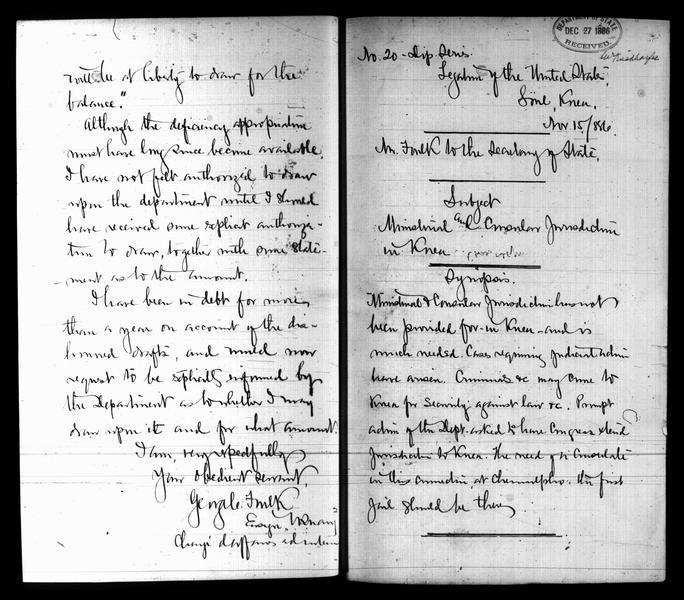 will be at liberty to draw for the
balance."
Although the deficiency appropriation
must have long since become available,
I have not felt authorized to draw
upon the department until I should
have received some explicit authoriza-
tion to draw, together with some state-
-ment as to the amount.
I have been in debt for more
than a year on account of the dis-
honored drafts, and would now
request to be explicitly informed by
the Department as to whether I may
draw upon it and for what amount.
I am, very respectfully
Your obedient servant,
George C. Foulk
Ensign, U.S. Navy
Chargé d'affaires ad interim
DEPARTMENT OF STATE
DEC 27 1886
RECEIVED
No. 20 - Dip. Series.
Legation of the United States,
Söul, Korea,
Nov. 15/886
Mr. Foulk to the Secretary of State,
Subject
Ministerial and Consular Jurisdiction
in Korea
Synopsis.
Ministerial & Consular Jurisdiction has not
been provided for in Korea - and is
much needed. Cases requiring Judicial action
have arisen. Criminals &c may come to
Korea for Security against law &c. Prompt
action of the Dept. asked to have Congress extend
Jurisdiction to Korea. The need of a Consulate
in this connection, at Chemulpho. the first
Jail should be there